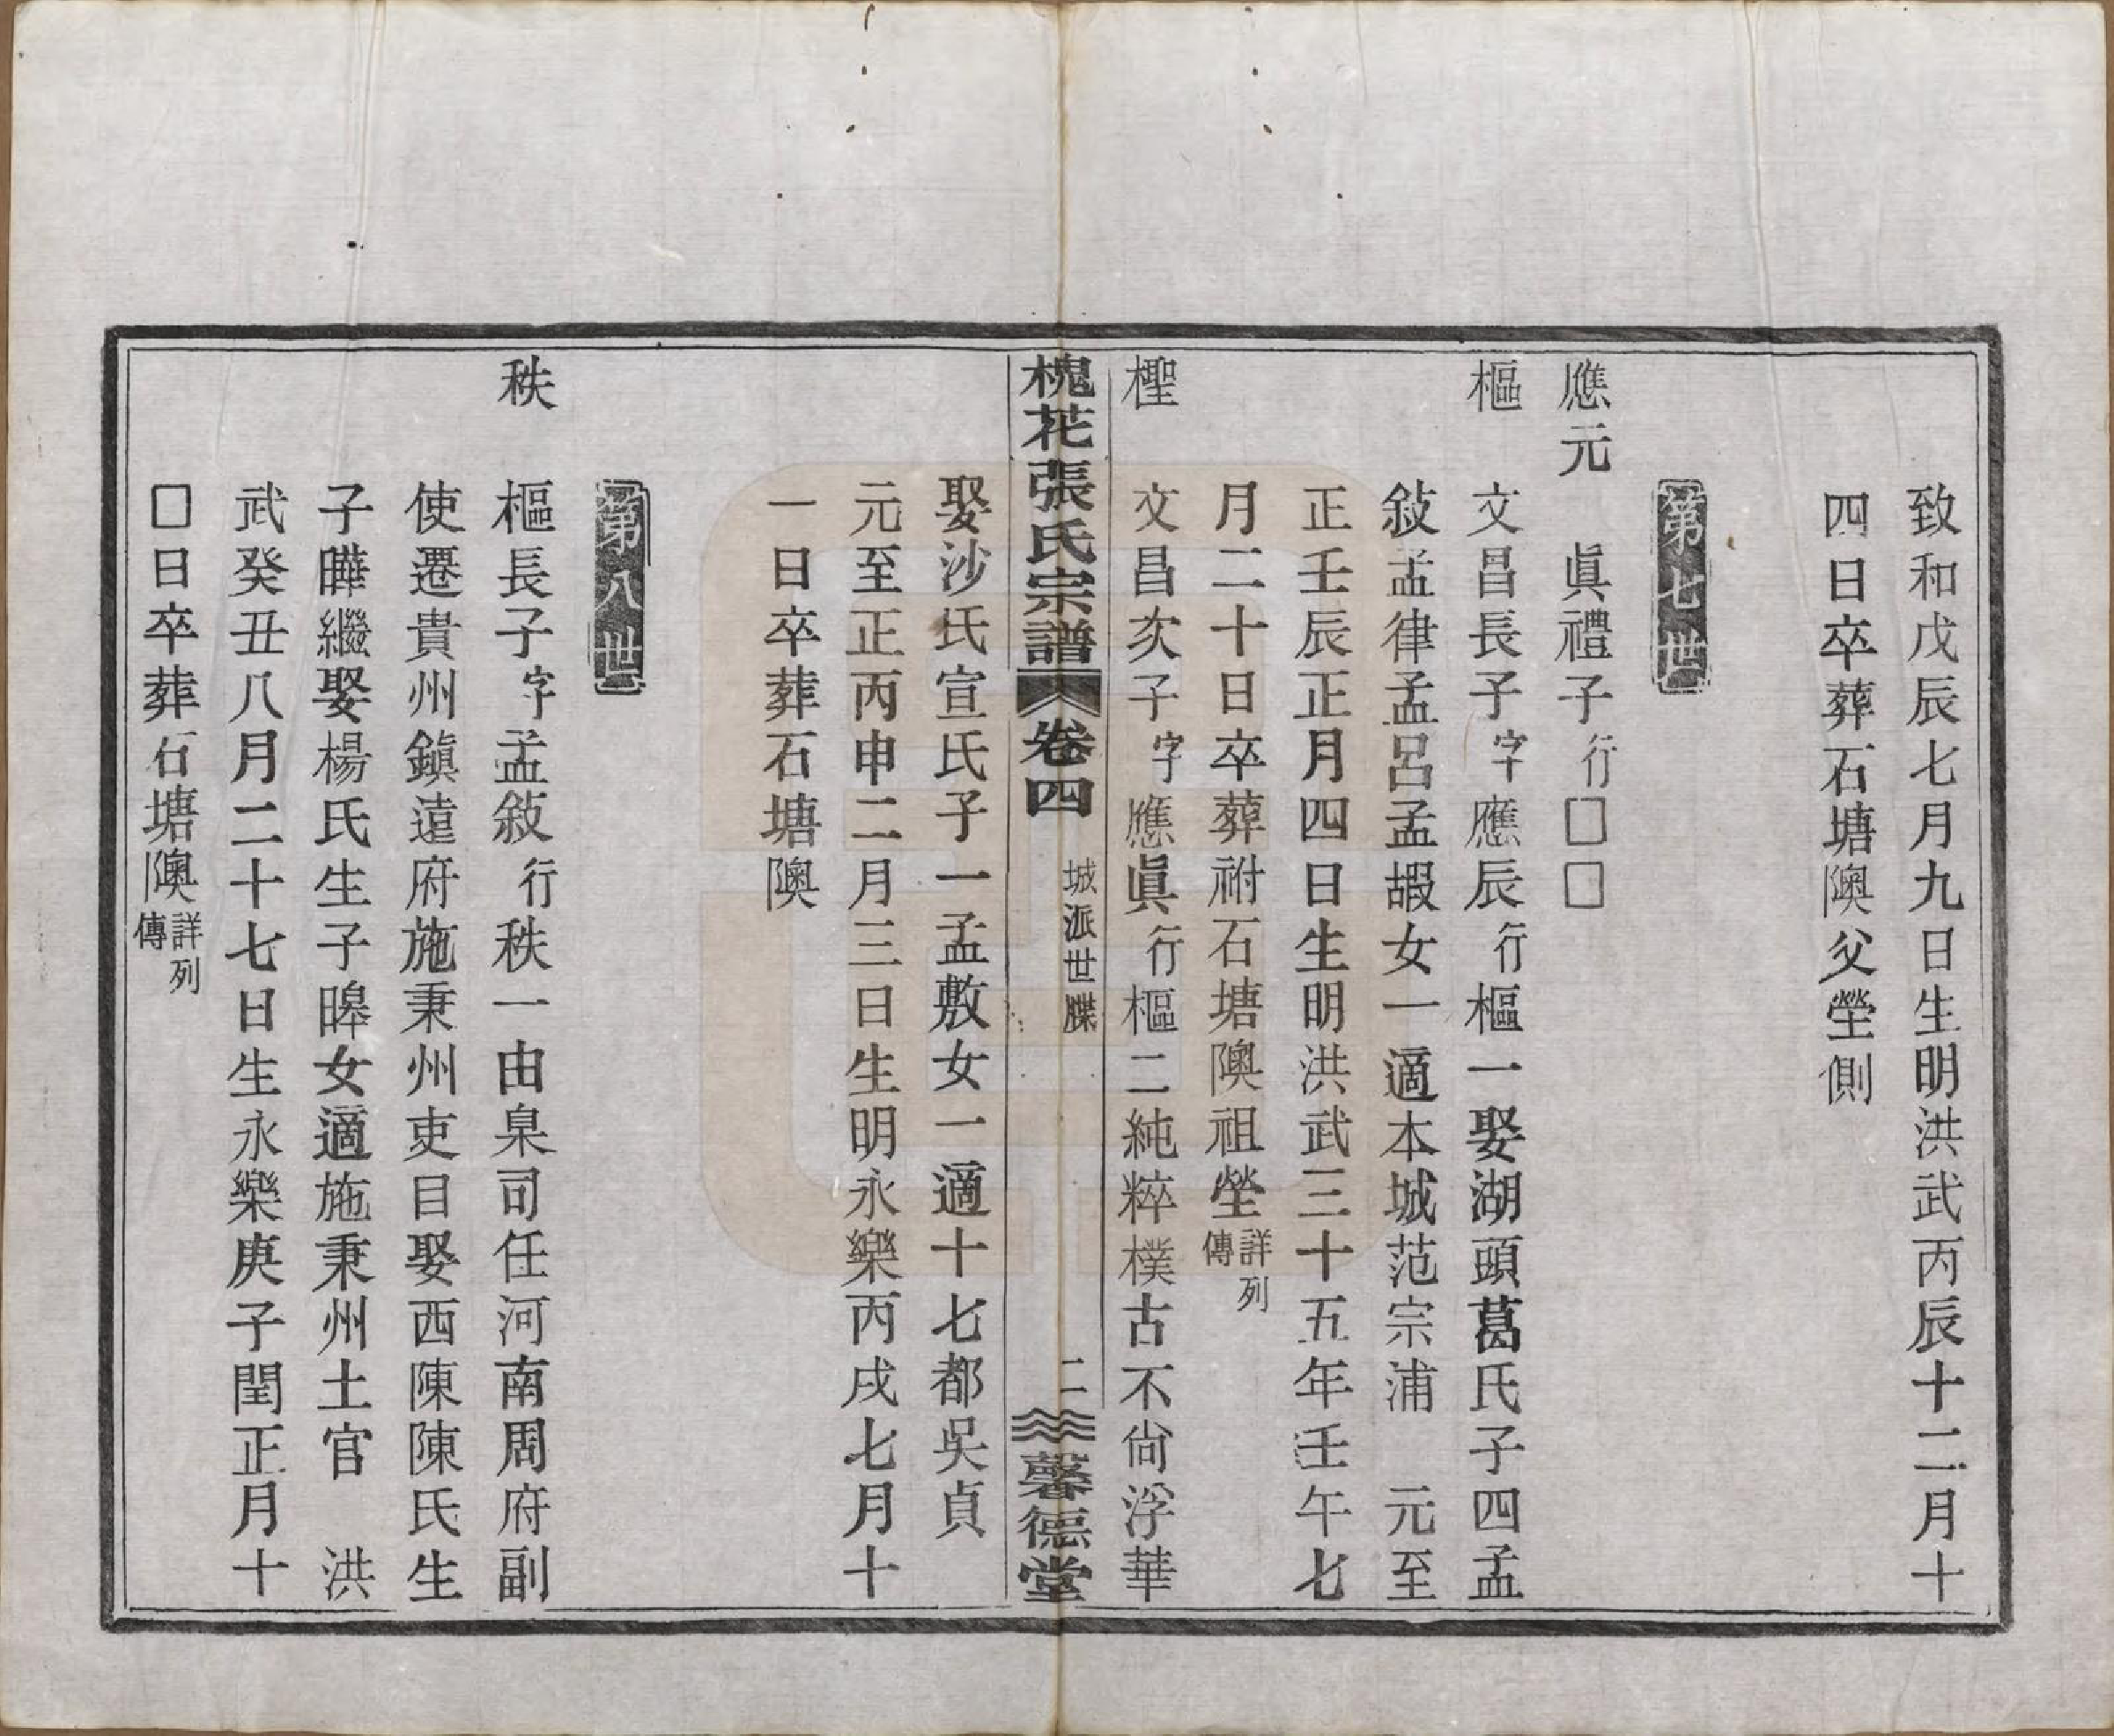 致和戊辰七月九日生明洪武丙辰十二月十
四日卒葬石塘隩父塋側
第七世
應元 眞禮子行□□
樞 文昌長子字應辰行樞一娶湖頭葛氏子四孟
敍孟律孟呂孟嘏女一適本城范宗浦 元至
正壬辰正月四日生明洪武三十五年壬午七
月二十日卒葬祔石塘隩祖塋詳列傳
檉 文昌次子字應眞行樞二純粹樸古不尙浮華
槐花張氏宗譜 卷四 城派世牒 二 馨德堂
娶沙氏宣氏子一孟敷女一適十七都吳貞
元至正丙申二月三日生明永樂丙戌七月十
一日卒葬石塘隩
第八世
秩 樞長子字孟敍行秩一由臬司任河南周府副
使遷貴州鎭遠府施秉州吏目娶西陳陳氏生
子曄繼娶楊氏生子暤女適施秉州土官 洪
武癸丑八月二十七日生永樂庚子閏正月十
□日卒葬石塘隩詳列傳